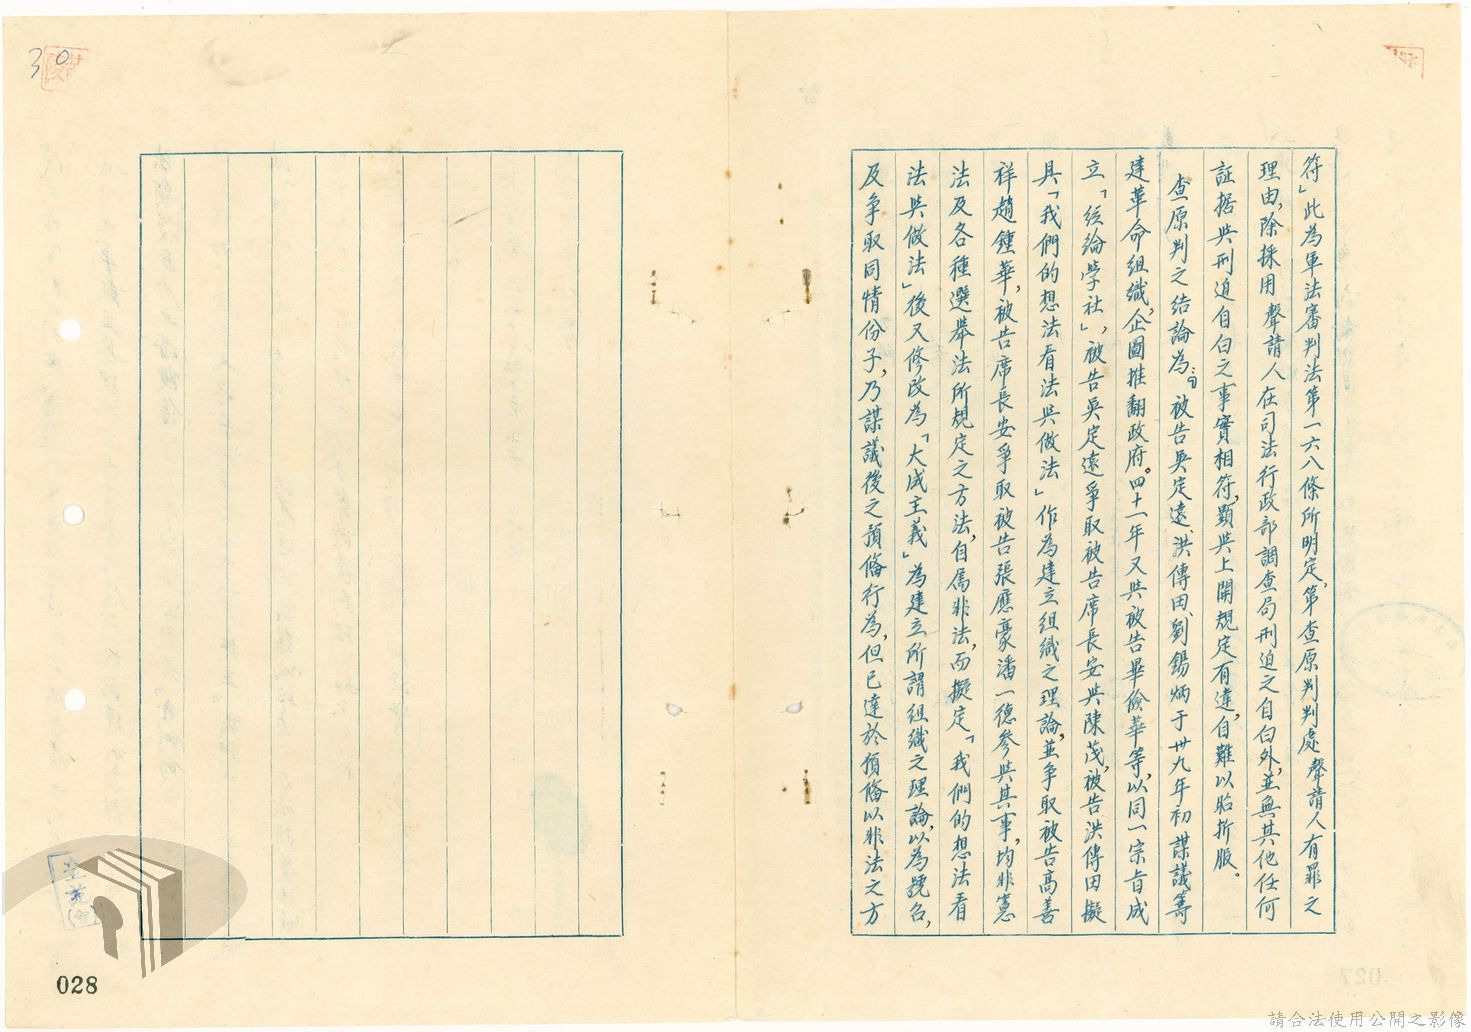 符」此為軍法審判法第一六八條所明定，第查原判判處聲請人有罪之
理由，除採用聲請人在司法行政部調查局刑迫之自白外，並無其他任何
証据與刑迫自白之事實相符，顯與上開規定有違，自難以昭折服。
查原判之結論為：『被告吳定遠、洪傳田、劉錫炳于卅九年初謀議籌
建革命組織，企圖推翻政府。四十一年又與被告畢儉華等，以同一宗旨成
立「經綸學社」，被告吳定遠爭取被告席長安與陳茂，被告洪傳田擬
具「我們的想法看法與做法」作為建立組織之理論，並爭取被告高善
祥趙鍾華，被告席長安爭取被告張應豪潘一德參與其事，均非憲
法及各種選舉法所規定之方法，自屬非法，而擬定「我們的想法看
法與做法」後又修改為「大成主義」為建立所謂組織之理論，以為號名，
及爭取同情份子，乃謀議後之預備行為，但已達於預備以非法之方
30
028
請合法使用公開之影像